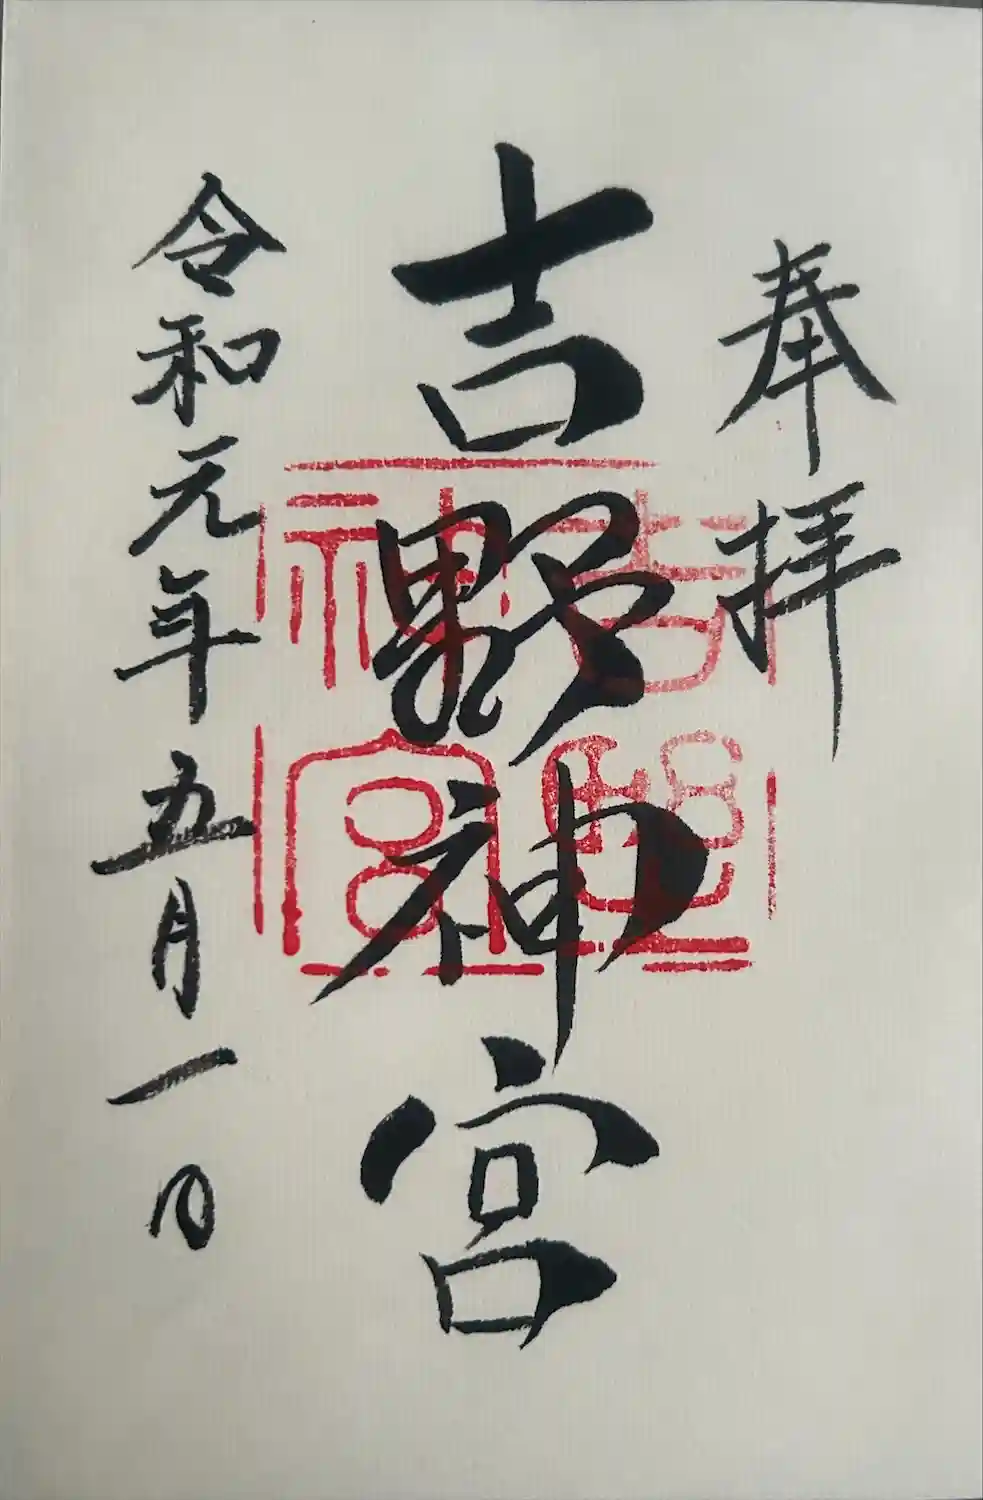 奉拝
吉野神宮
令和元年五月一日
吉野
神宮